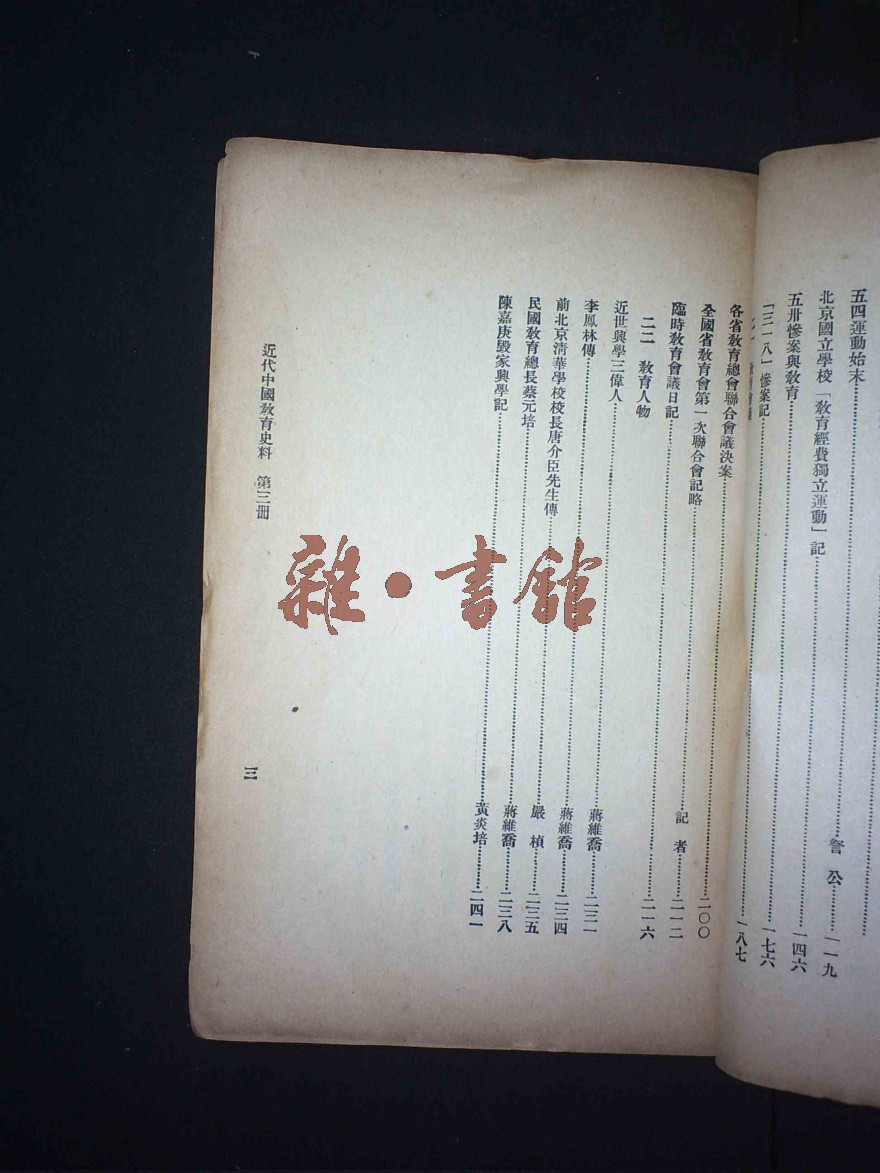 五四運動始末
北京國立學校「教育經費獨立運動」記 公 一一九
五卅慘案與教育 一四六
「三一八」慘案記 一七六
一八七
各省教育總會聯合會議決案 二〇〇
全國省教育會第一次聯合會記略 記者 二一二
臨時教育會議日記 二一六
二二 教育人物
近世興學三偉人 蔣維喬 二三一
李鳳林傳 蔣維喬 二三四
前北京清華學校校長唐介臣先生傳 嚴楨 二三五
民國教育總長蔡元培 蔣維喬 二三八
陳嘉庚毀家興學記 黃炎培 二四一
近代中國教育史料 第三冊
三
雜・書館